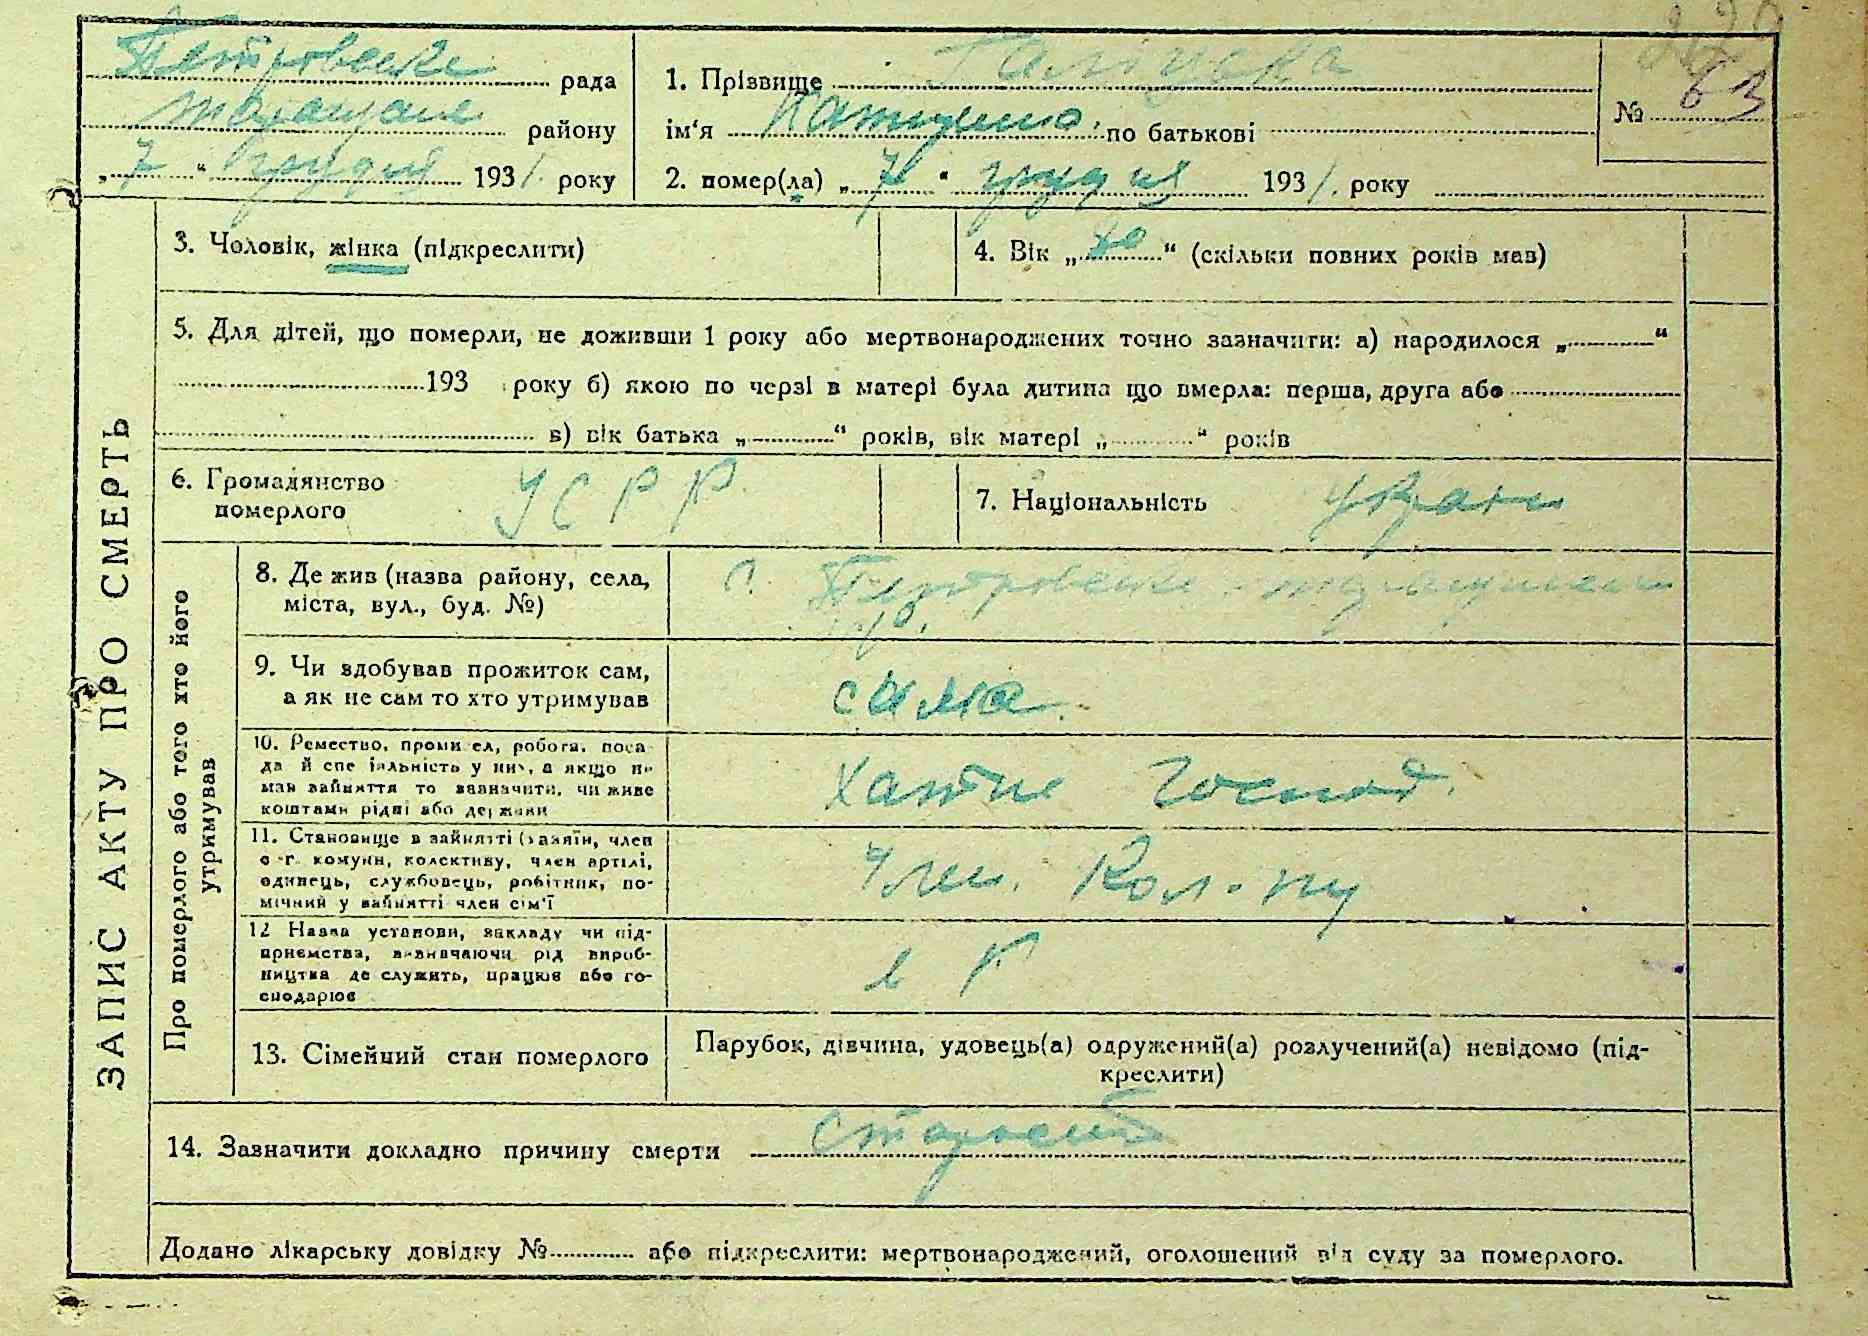 Петровська рада
району
„ 7 “ грудня 1931. року
1. Прізвище
ім‘я по батькові
№ 63
2. помер(ла) „ 7 “ грудня 1931. року
3. Чоловік, жінка (підкреслити)
4. Вік „ “ (скільки повних років мав)
5. Для дітей, що померли, не доживши 1 року або мертвонароджених точно зазначити: а) народилося „ “
193 року б) якою по черзі в матері була дитина що вмерла: перша, друга або
в) вік батька „ “ років, вік матері „ “ років
6. Громадянство
померлого
УСРР
7. Національність
ЗАПИС АКТУ ПРО СМЕРТЬ
Про померлого або того хто його
утримував
8. Де жив (назва району, села,
міста, вул., буд. №)
с. Петровське
9. Чи здобував прожиток сам,
а як не сам то хто утримував
сама
10. Ремество, промисел, робота, поса-
да й спеціяльність у них, а якщо не
мав зайняття то зазначити, чи живе
коштами рідні або держави
Хатне господ.
11. Становище в зайнятті (хазяїн, член
с-г. комуни, колективу, член артілі,
одинець, службовець, робітник, по-
мічний у зайнятті член сім‘ї
Член. Кол-ву
12 Назва установи, закладу чи під-
приємства, визначаючи рід вироб-
ництва де служить, працює або го-
сподарює
в К
13. Сімейний стан померлого
Парубок, дівчина, удовець(а) одружений(а) розлучений(а) невідомо (під-
креслити)
14. Зазначити докладно причину смерти
старость
Додано лікарську довідку № або підкреслити: мертвонароджений, оголошений від суду за померлого.